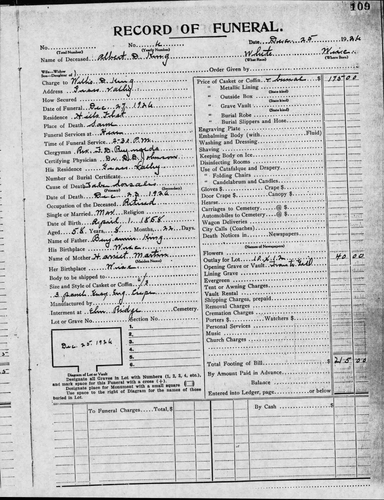 109
RECORD OF FUNERAL.
No. No. Date Dec. 25 1926
(Total Number) (Yearly Number)
Name of Deceased Albert D. King White Wisc.
(What Race) (Where Born)
Charge to D. King Order Given by
Address Valley
How Secured
Date of Funeral Dec. 27 1926
Residence
Place of Death Same
Funeral Services at Home
Time of Funeral Service 2:30 P.M.
Clergyman Rev.
Certifying Physician Dr. Johnson
His Residence Valley
Number of Burial Certificate
Cause of Death
Date of Death Dec 23 1926
Occupation of the Deceased Retired
Single or Married Mar. Religion
Date of Birth April 1 1868
Aged 58 Years 8 Months 22 Days
Name of Father Benjamin King
His Birthplace Wisc
Name of Mother Harriet Martin
(Maiden Name)
Her Birthplace Wisc
Body to be shipped to
Size and Style of Casket
Manufactured by
Interment at Elm Ridge Cemetery
Lot or Grave No. Section No.
1.
2.
3.
4.
5.
6.
Dec 25. 1926
Diagram of Lot or Vault
Designate all Graves in Lot with Numbers (1, 2, 3, 4, etc.), and mark space for this Funeral with a cross (+).
Designate place for Monument with a small square
Use space to right of Diagram for the names of those buried in Lot.
Price of Casket or Coffin $ 175 00
" Metallic Lining
(State kind)
" Outside Box
(State kind)
" Grave Vault
(State kind)
" Burial Robe
(State kind)
" Burial Slippers and Hose
Engraving Plate
Embalming Body (with Fluid)
Washing and Dressing
Shaving
Keeping Body on Ice
Disinfecting Rooms
Use of Catafalque and Drapery
" Folding Chairs
" Candelabrum and Candles
Gloves $ Crape $
Door Crape $ Canopy $
Hearse
Carriages to Cemetery @ $
Automobiles to Cemetery @ $
Wagon Deliveries
City Calls (Coaches)
Death Notices in Newspapers
(Names of Newspapers)
Flowers
Outlay for Lot
Opening Grave or Vault 40 00
Lining Grave
Evergreen
Tent or Awning Charges
Vault Rental
Shipping Charges, prepaid
Removal Charges
Cremation Charges
Porters $ Watchers $
Personal Services
Music
Church Charges
Total Footing of Bill $ 215 00
By Amount Paid in Advance
Balance
Entered into Ledger, page or below.
To Funeral Charges Total $
By Cash $